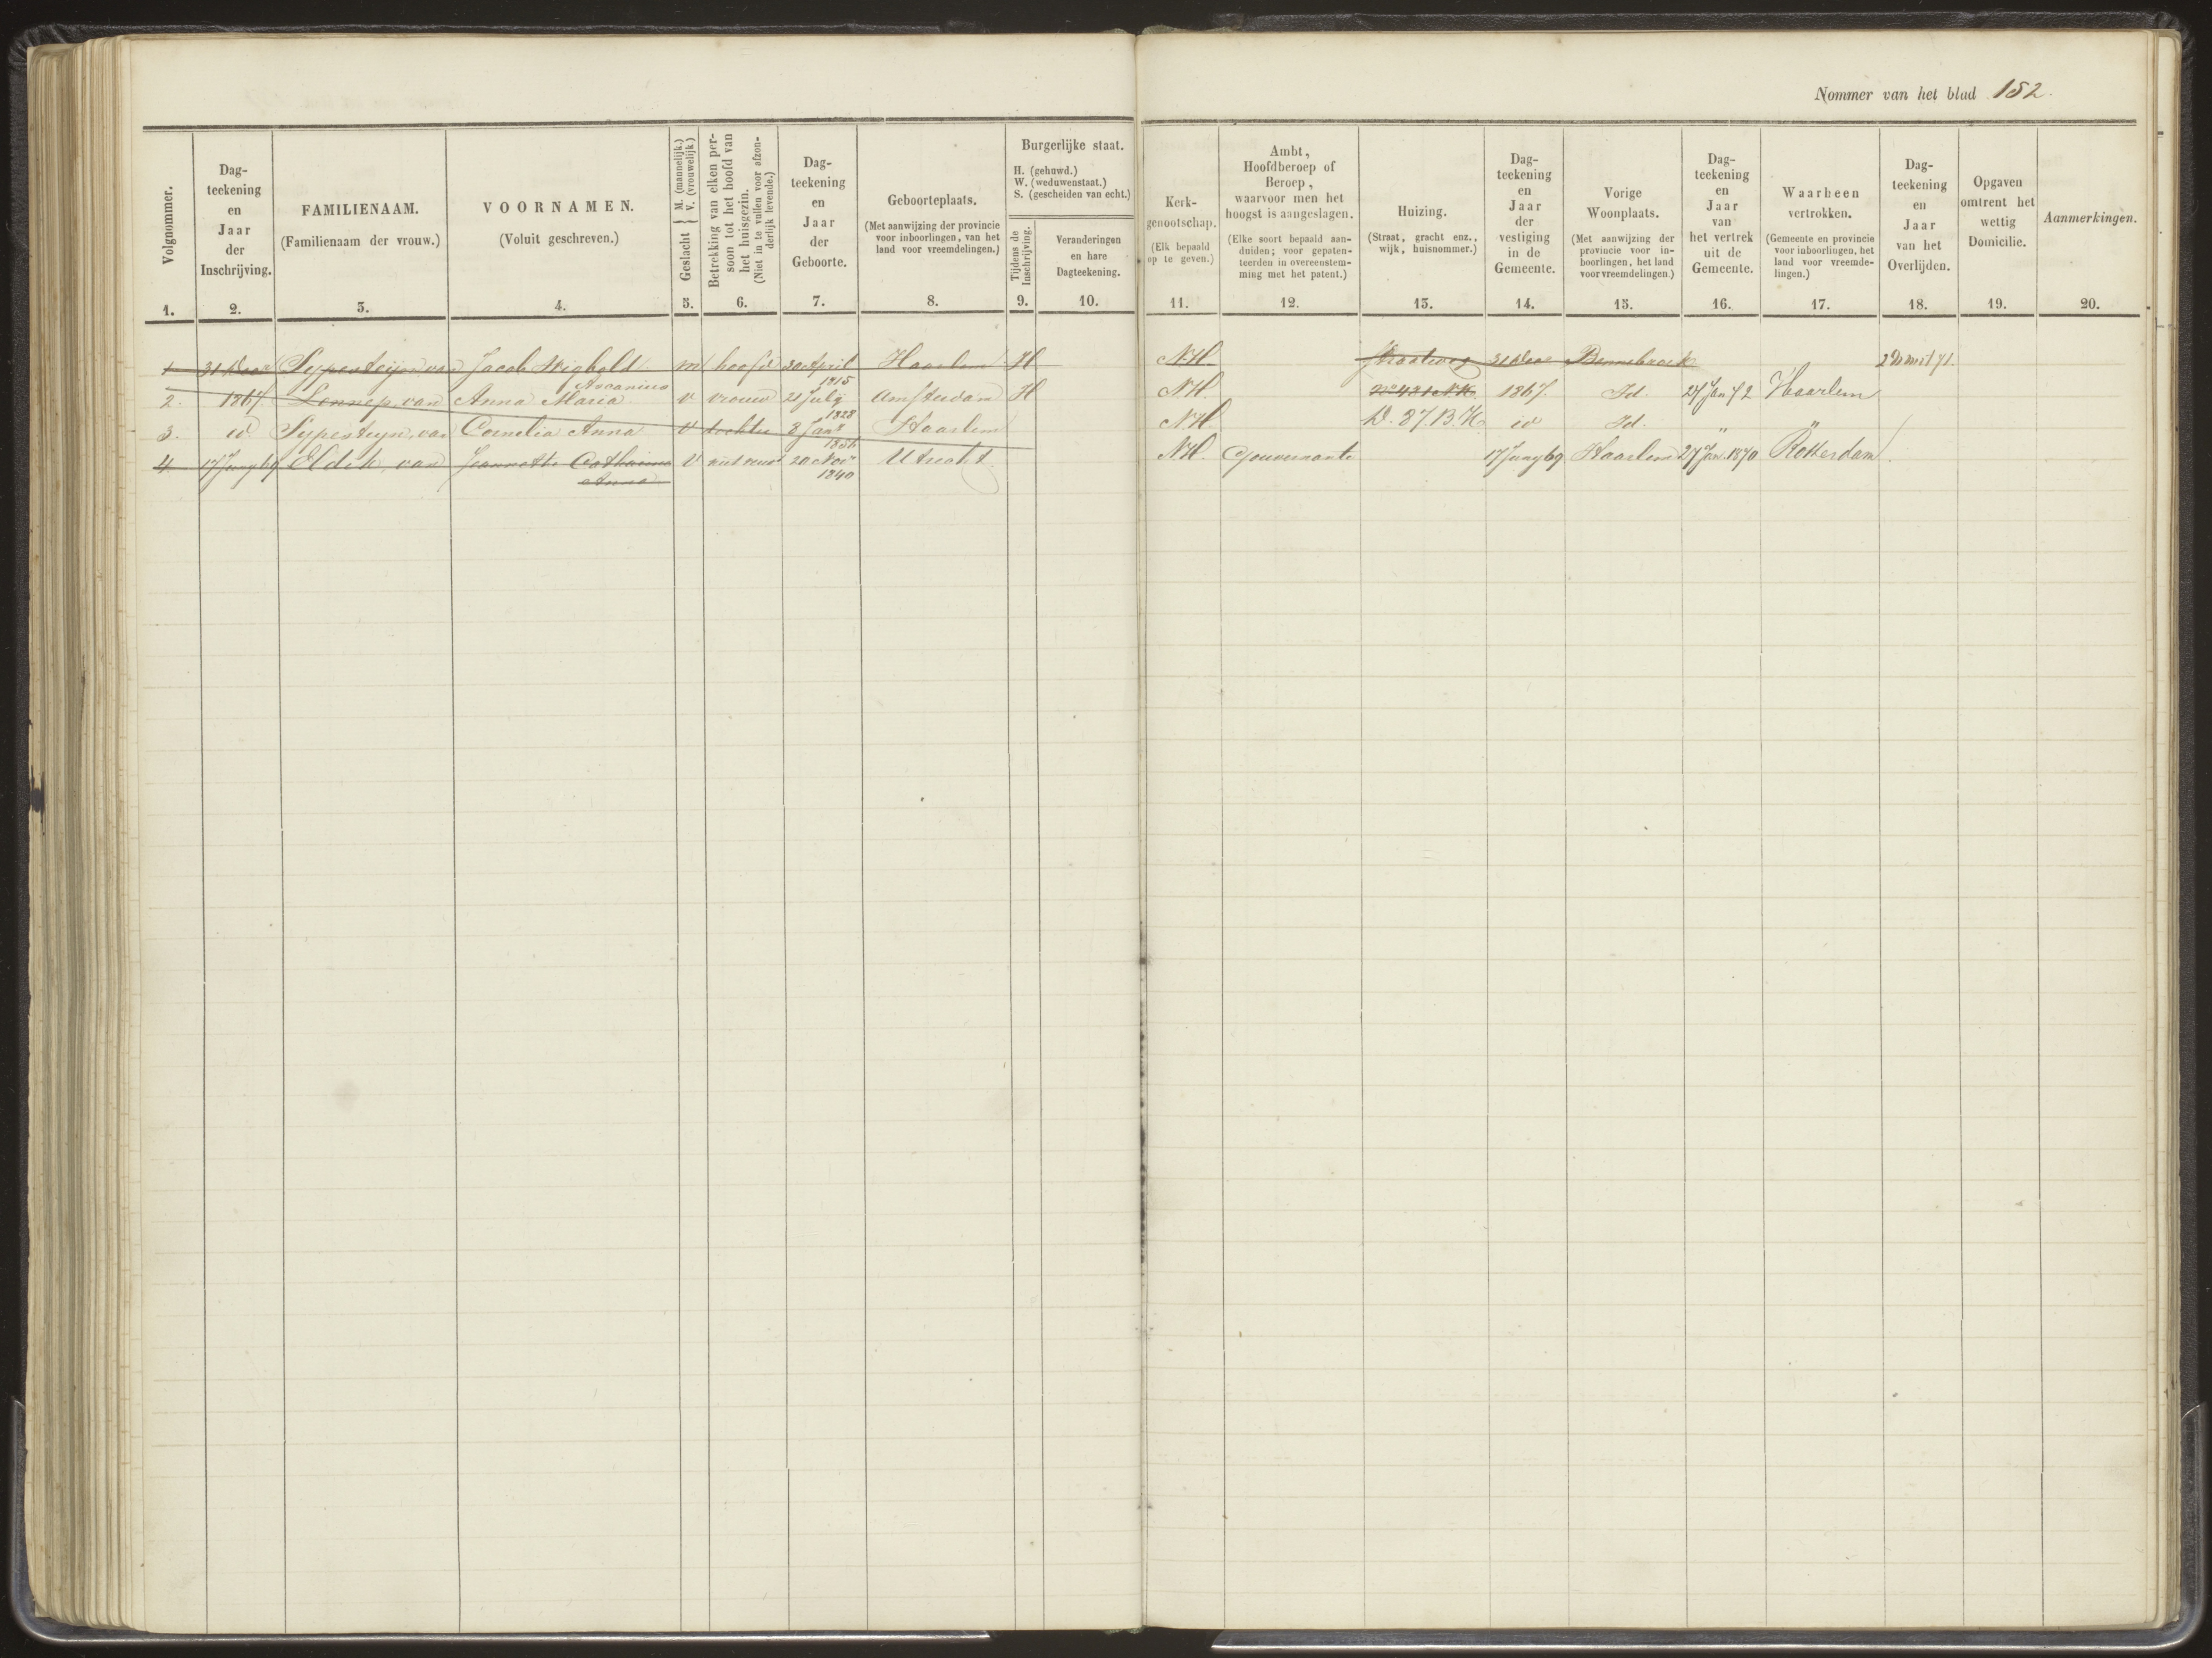 Nommer van het blad 152.
Volgnommer.
1.
Dag-
teekening
en
Jaar
der
Inschrijving.
2.
FAMILIENAAM.
(Familienaam der vrouw.)
3.
VOORNAMEN.
(Voluit geschreven.)
4.
Geslacht { M. (mannelijk.)
V. (vrouwelijk)
5.
Betrekking van elken per-
soon tot het hoofd van
het huisgezin.
(Niet in te vullen voor afzon-
derlijk levende.)
6.
Dag-
teekening
en
Jaar
der
Geboorte.
7.
Geboorteplaats.
(Met aanwijzing der provincie
voor inboorlingen, van het
land voor vreemdelingen.)
8.
Burgerlijke staat.
H. (gehuwd.)
W. (weduwenstaat.)
S. (gescheiden van echt.)
Tijdens de
Inschrijving.
9.
Veranderingen
en hare
Dagteekening.
10.
Kerk-
genootschap.
(Elk bepaald
op te geven.)
11.
Ambt,
Hoofdberoep of
Beroep,
waarvoor men het
hoogst is aangeslagen.
(Elke soort bepaald aan-
duiden; voor gepaten-
teerden in overeenstem-
ming met het patent.)
12.
Huizing.
(Straat, gracht enz.,
wijk, huisnommer.)
13.
Dag-
teekening
en
Jaar
der
vestiging
in de
Gemeente.
14.
Vorige
Woonplaats.
(Met aanwijzing der
provincie voor in-
boorlingen, het land
voor vreemdelingen.)
15.
Dag-
teekening
en
Jaar
van
het vertrek
uit de
Gemeente.
16.
Waarheen
vertrokken.
(Gemeente en provincie
voor inboorlingen, het
land voor vreemde-
lingen.)
17.
Dag-
teekening
en
Jaar
van het
Overlijden.
18.
Opgaven
omtrent het
wettig
Domicilie.
19.
Aanmerkingen.
20.
1 31 Decr Sypesteijn, van Jacob Wigbold m hoofd 30 April Haarlem H N.H. Straatweg 31 Decr Bennebroek 2 71.
Ascanius 1815
2. 1867. Lennep, van Anna Maria v vrouw 21 July Amsterdam H N.H. 1867. Id. 27 Jan 72 Haarlem
1828
3. id Sypesteyn, van Cornelia Anna v dochter 8 Jany Haarlem N.H. D. 87. B.K. id Id. " "
4 17 Juny 69 Eldik, van Jeannette Catharina V 20 Novr Utrecht N.H. Gouvernante 17 Juny 69 Haarlem 27 Jan. 1870 Rotterdam
Anna 1840